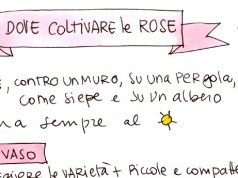 DOVE COLTIVARE le ROSE
, CONTRO UN MURO, SU UNA PERGOLA,
COME SIEPE E SU UN ALBERO
sempre al
VASO
le VARIETÀ + Piccole e compatte